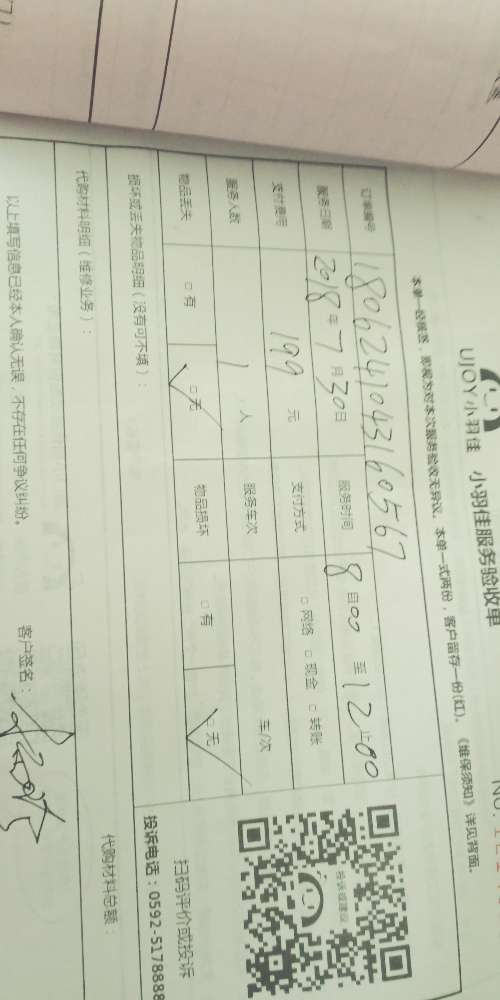 UJOY小羽佳 小羽佳服务验收单
本单一经签署，即视为对本次服务验收无异议。本单一式两份，客户留存一份(红)。《维保须知》详见背面。
订单编号 1806241043160567
服务日期 2018年7月30日 服务时间 8自00 至12止00
支付费用 199元 支付方式 □网络 □现金 □转账
服务人数 1人 服务车次 车/次
物品丢失 □有 □无 物品损坏 □有 □无
损坏或丢失物品明细（没有可不填）：
代购材料明细（维修业务）： 代购材料总额：
以上填写信息已经本人确认无误，不存在任何争议纠纷。 客户签名：
投诉或建议
扫码评价或投诉
投诉电话：0592-5178888